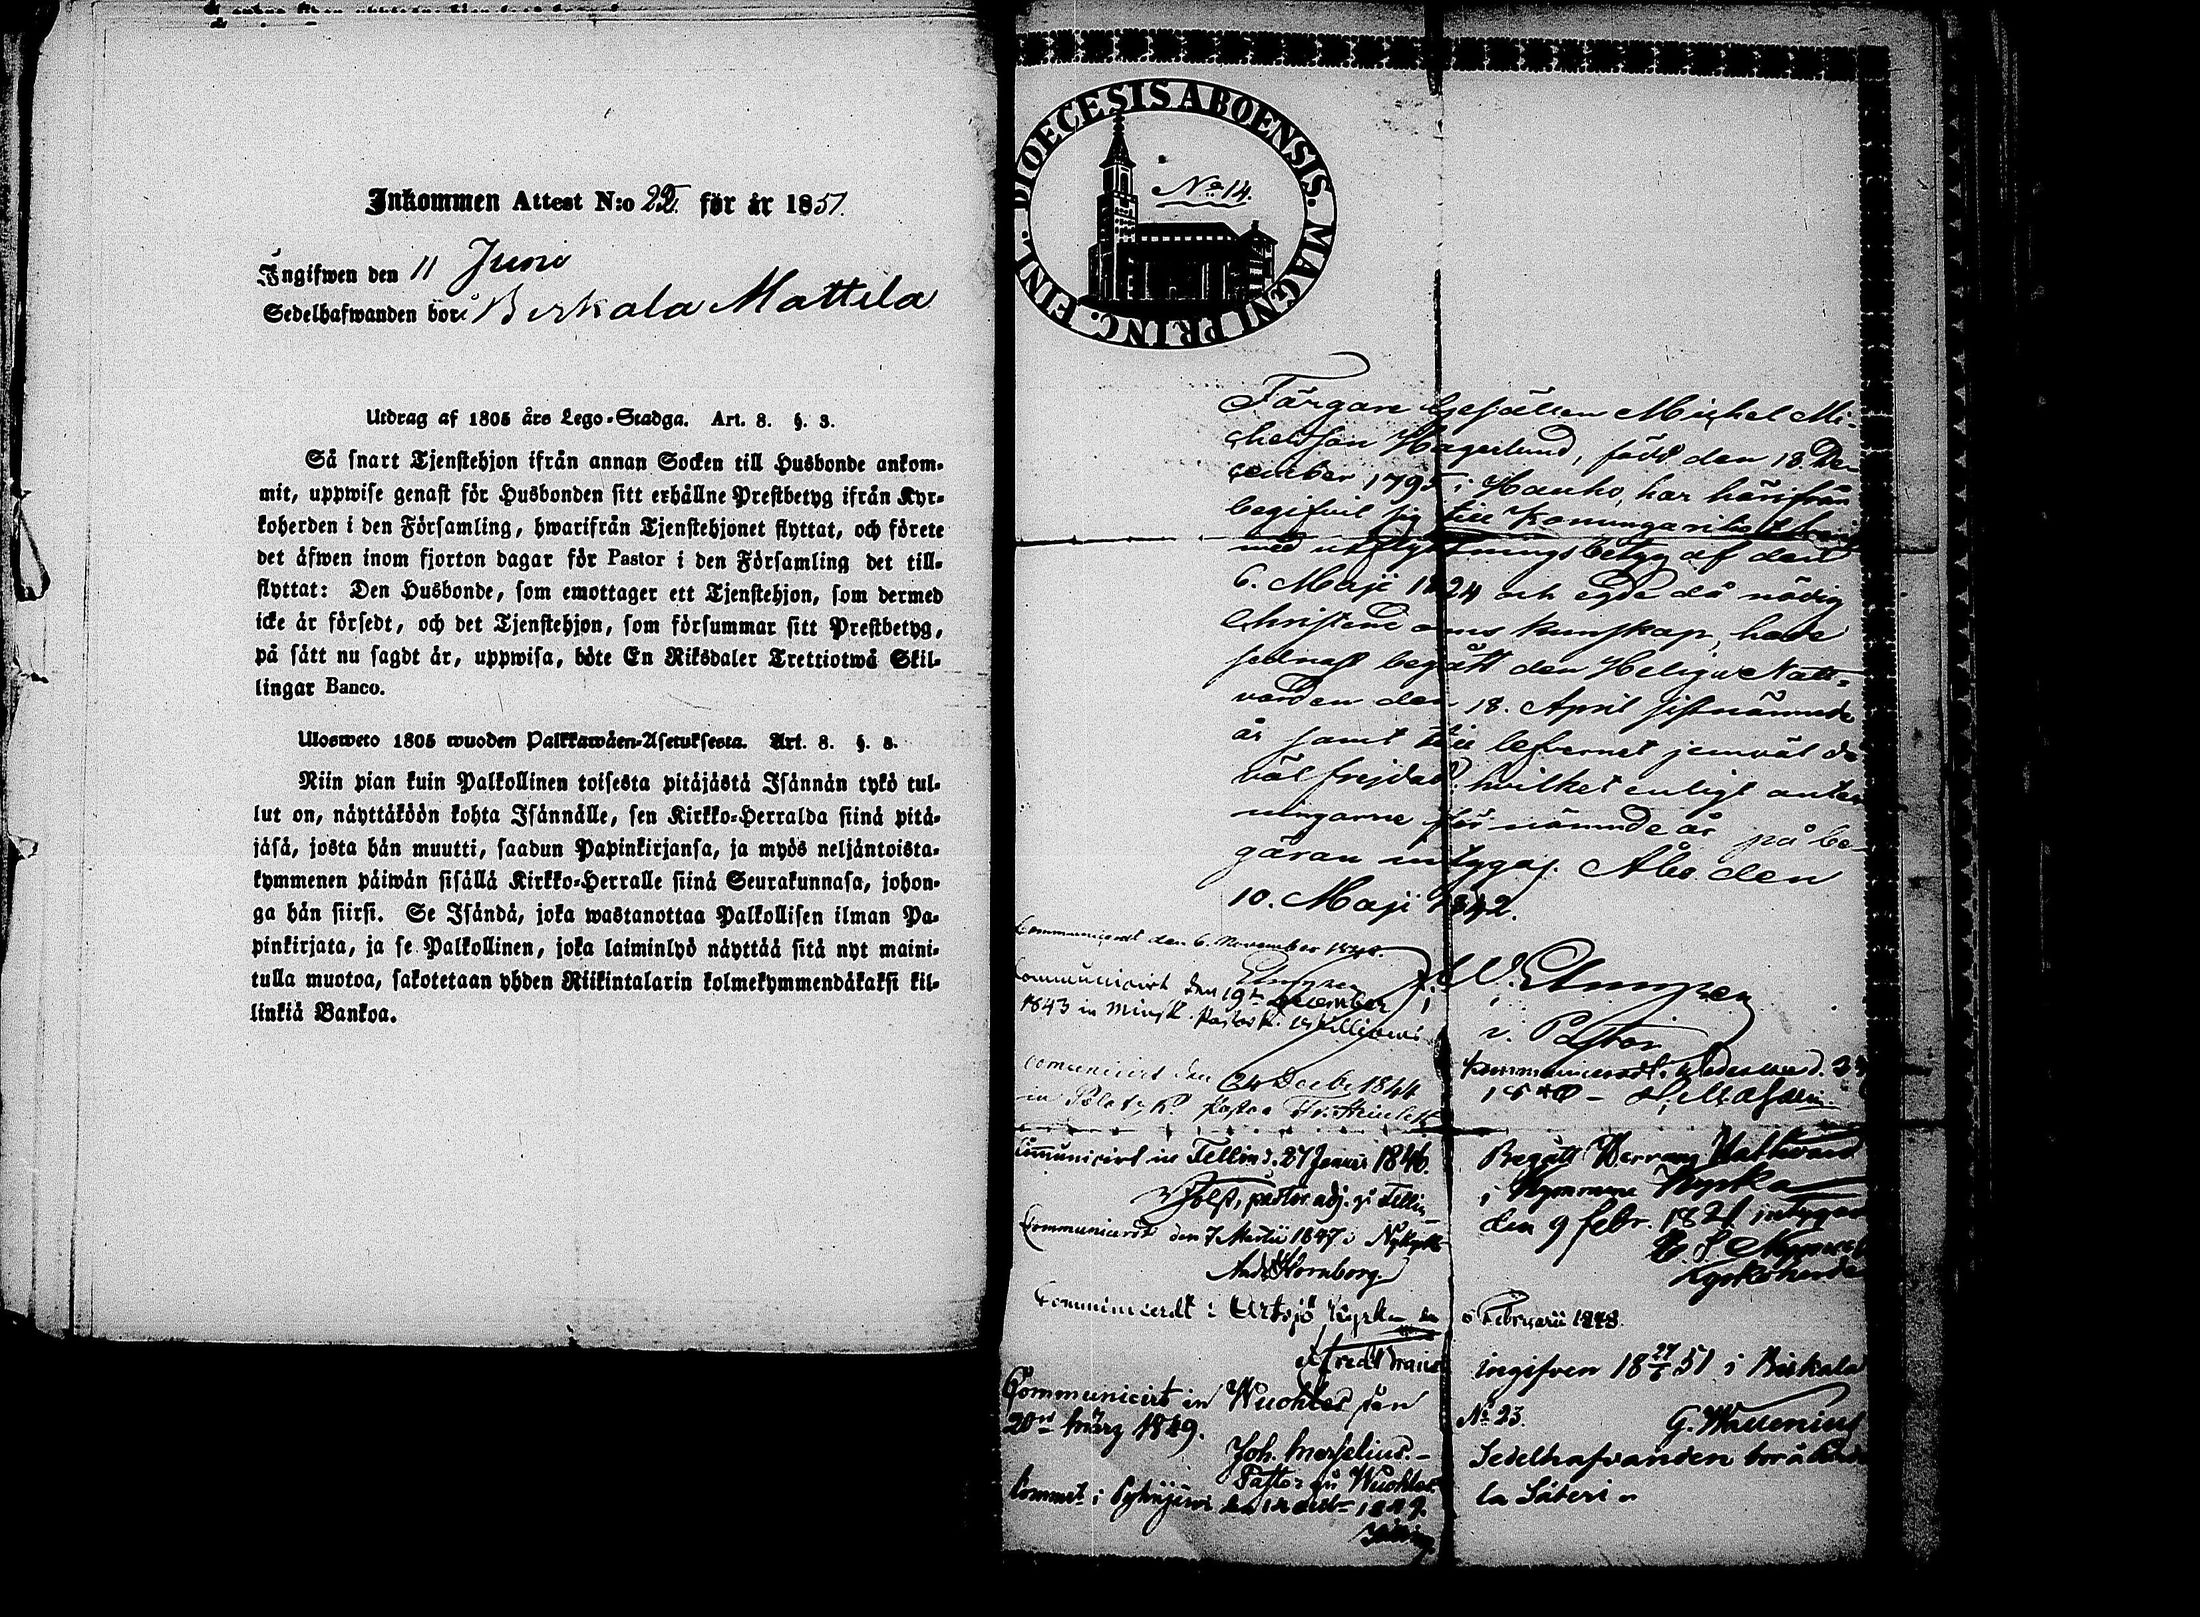 Inkommen Attest N:o 22. för år 1851.
Ingifwen den 11 Junii
Sedelhafwanden bor i Birkala Mattila
Utdrag af 1805 års Lego-Stadga. Art. 8. §. 3.
Så snart Tjenstehjon ifrån annan Socken till Husbonde ankom-
mit, uppwise genast för Husbonden sitt erhållne Prestbetyg ifrån Kyr-
koherden i den Församling, hwarifrån Tjenstehjonet flyttat, och förete
det äfwen inom fjorton dagar för Pastor i den Församling det till-
flyttat: Den Husbonde, som emottager ett Tjenstehjon, som dermed
icke är försedt, och det Tjenstehjon, som försummar sitt Prestbetyg,
på sätt nu sagdt är, uppwisa, böte En Riksdaler Trettiotwå Skil-
lingar Banco.
Ulosweto 1805 wuoden Palkkawäen-Asetuksesta. Art. 8. §. 3.
Niin pian kuin Palkollinen toisesta pitäjästä Isännän tykö tul-
lut on, näyttäköön kohta Isännälle, sen Kirkko-Herralda siinä pitä-
jäsä, josta hän muutti, saadun Papinkirjansa, ja myös neljäntoista-
kymmenen päiwän sisällä Kirkko-Herralle siinä Seurakunnasa, johon-
ga hän siirsi. Se Isändä, joka wastanottaa Palkollisen ilman Pa-
pinkirjata, ja se Palkollinen, joka laiminlyö näyttää sitä nyt maini-
tulla muotoa, sakotetaan yhden Riikintalarin kolmekymmendäkaksi kil-
linkiä Bankoa.
DIOECESIS ABOENSIS. MAGNI PRINC. FINL.
No 14.
Färgare Gesällen Michel Mi-
chelsson Hagerlund, född den 18. De-
cember 1795 i Hauho, har härifrån
begifvit sig till Konungariket
med utflyttningsbetyg af den
6. Maji 1824 och egde då nödig
Christendoms kunskap, hade
sednast begått den Heliga Natt-
varden den 18. April sistnämnde
år samt till lefvernet jemväl då
väl frejdad; hvilket enligt anteck
ningarne för nämnde år på be-
gäran intygas. Åbo den
10. Maji 1842.
v. Pastor
Communicerat den 6. November
Communicirt den 19 December
1843 in Minsk. Pastor
Comunicirt den Decbr 1844
in Polotzk Pastor
Communicirt in Fellin d. 27 Januar 1846.
Holst, pastor adj. zu Fellin
Communicerat den 7 Martii 1847 i Nykyrk
And. Hornborg.
Communicerat i Artsjö Kyrka den 6 Februarii 1848.
Communicirt in Wuohles den
20ten März 1849.
Joh.
Pastor zu Wuohles
i Pyhäjerwi
Begått Herrans Nattvard
i Kyrka
den 9 febr. intygar
Kyrkoherde
ingifven 18 27/6 51 i Birkala
No 23. G. Wallenius
Sedelhafvanden bor å
la Säteri